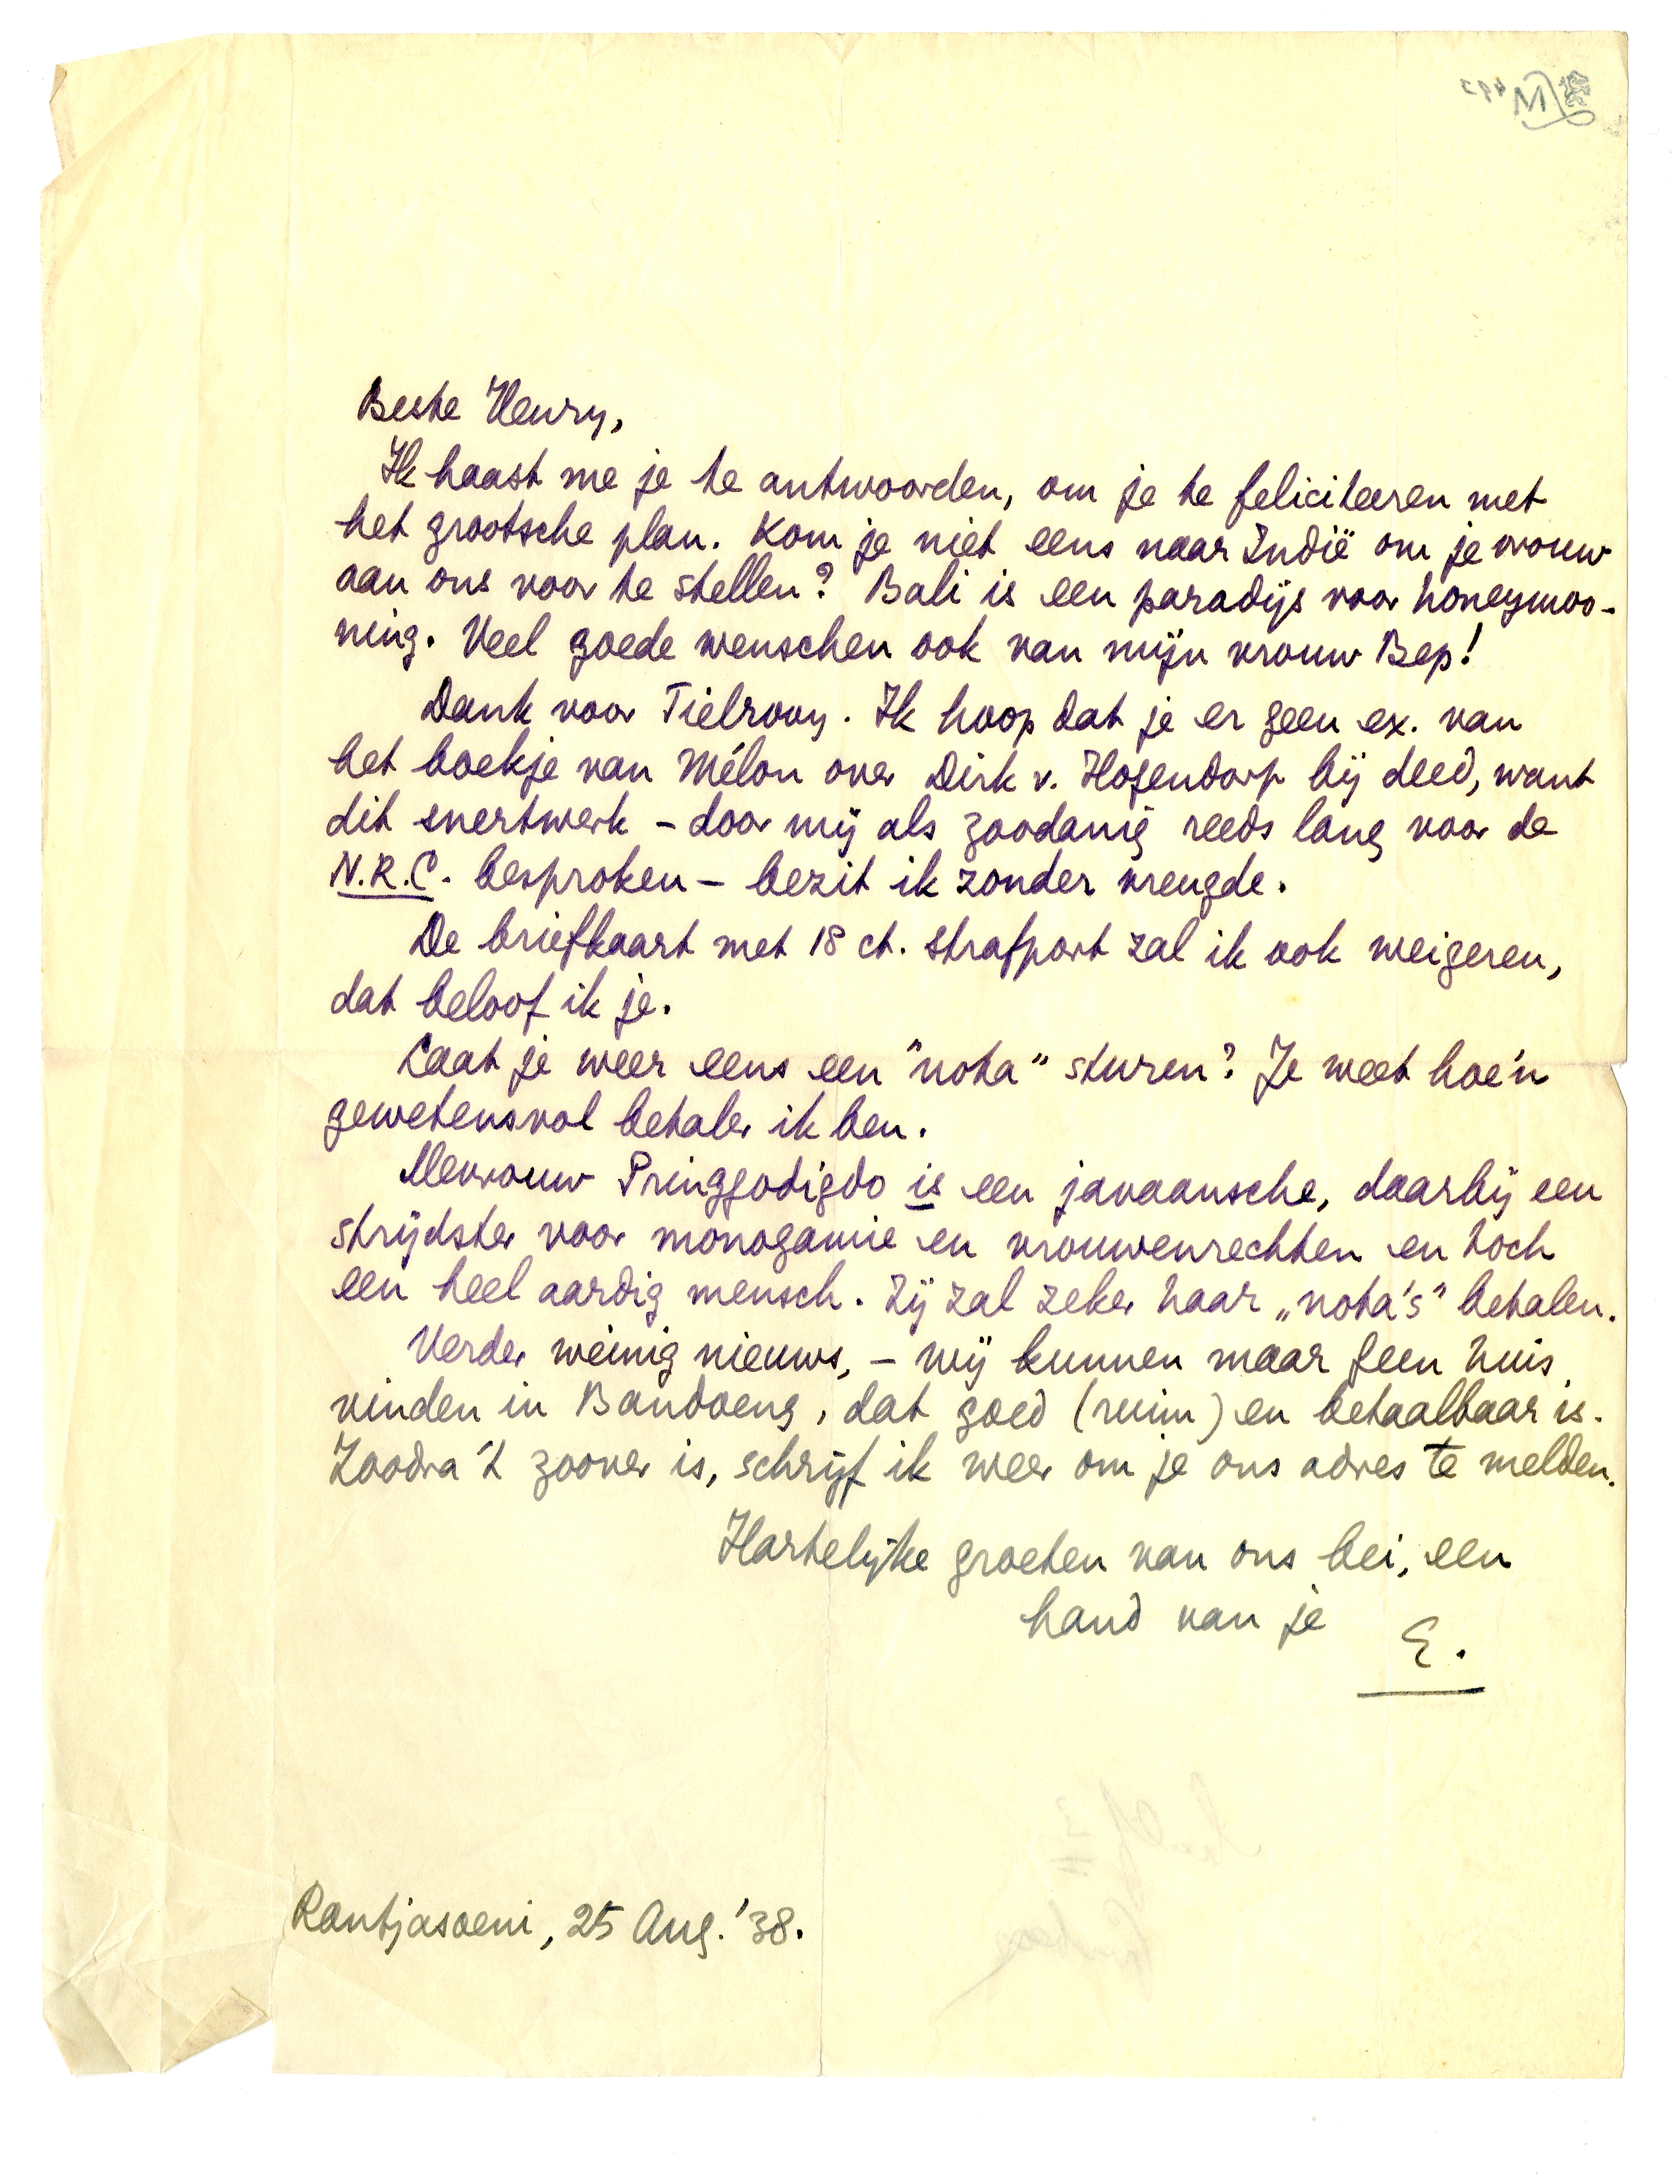 Beste Henry,
Ik haast me je te antwoorden, om je te feliciteeren met
het grootsche plan. Kom je niet eens naar Indië om je vrouw
aan ons voor te stellen? Bali is een paradijs voor honeymoo-
ning. Veel goede wenschen ook van mijn vrouw Bep!
Dank voor Tielrooy. Ik hoop dat je er geen ex. van
het boekje van Mélon over Dirk v. Hogendorp bij deed, want
dit snertwerk – door mij als zoodanig reeds lang voor de
N.R.C. besproken – bezit ik zonder vreugde.
De briefkaart met 18 ct. strafport zal ik ook weigeren,
dat beloof ik je.
Laat je weer eens een "nota" sturen? Je weet hoe'n
gewetensvol betaler ik ben.
Mevrouw Pringgodigdo is een javaansche, daarbij een
strijdster voor monogamie en vrouwenrechten en toch
een heel aardig mensch. Zij zal zeker haar „nota's" betalen.
Verder weinig nieuws, – wij kunnen maar geen huis
vinden in Bandoeng, dat goed (ruim) en betaalbaar is.
Zoodra 't zoover is, schrijf ik weer om je ons adres te melden.
Hartelijke groeten van ons bei, een
hand van je
E.
Rantjasoeni, 25 Aug. '38.